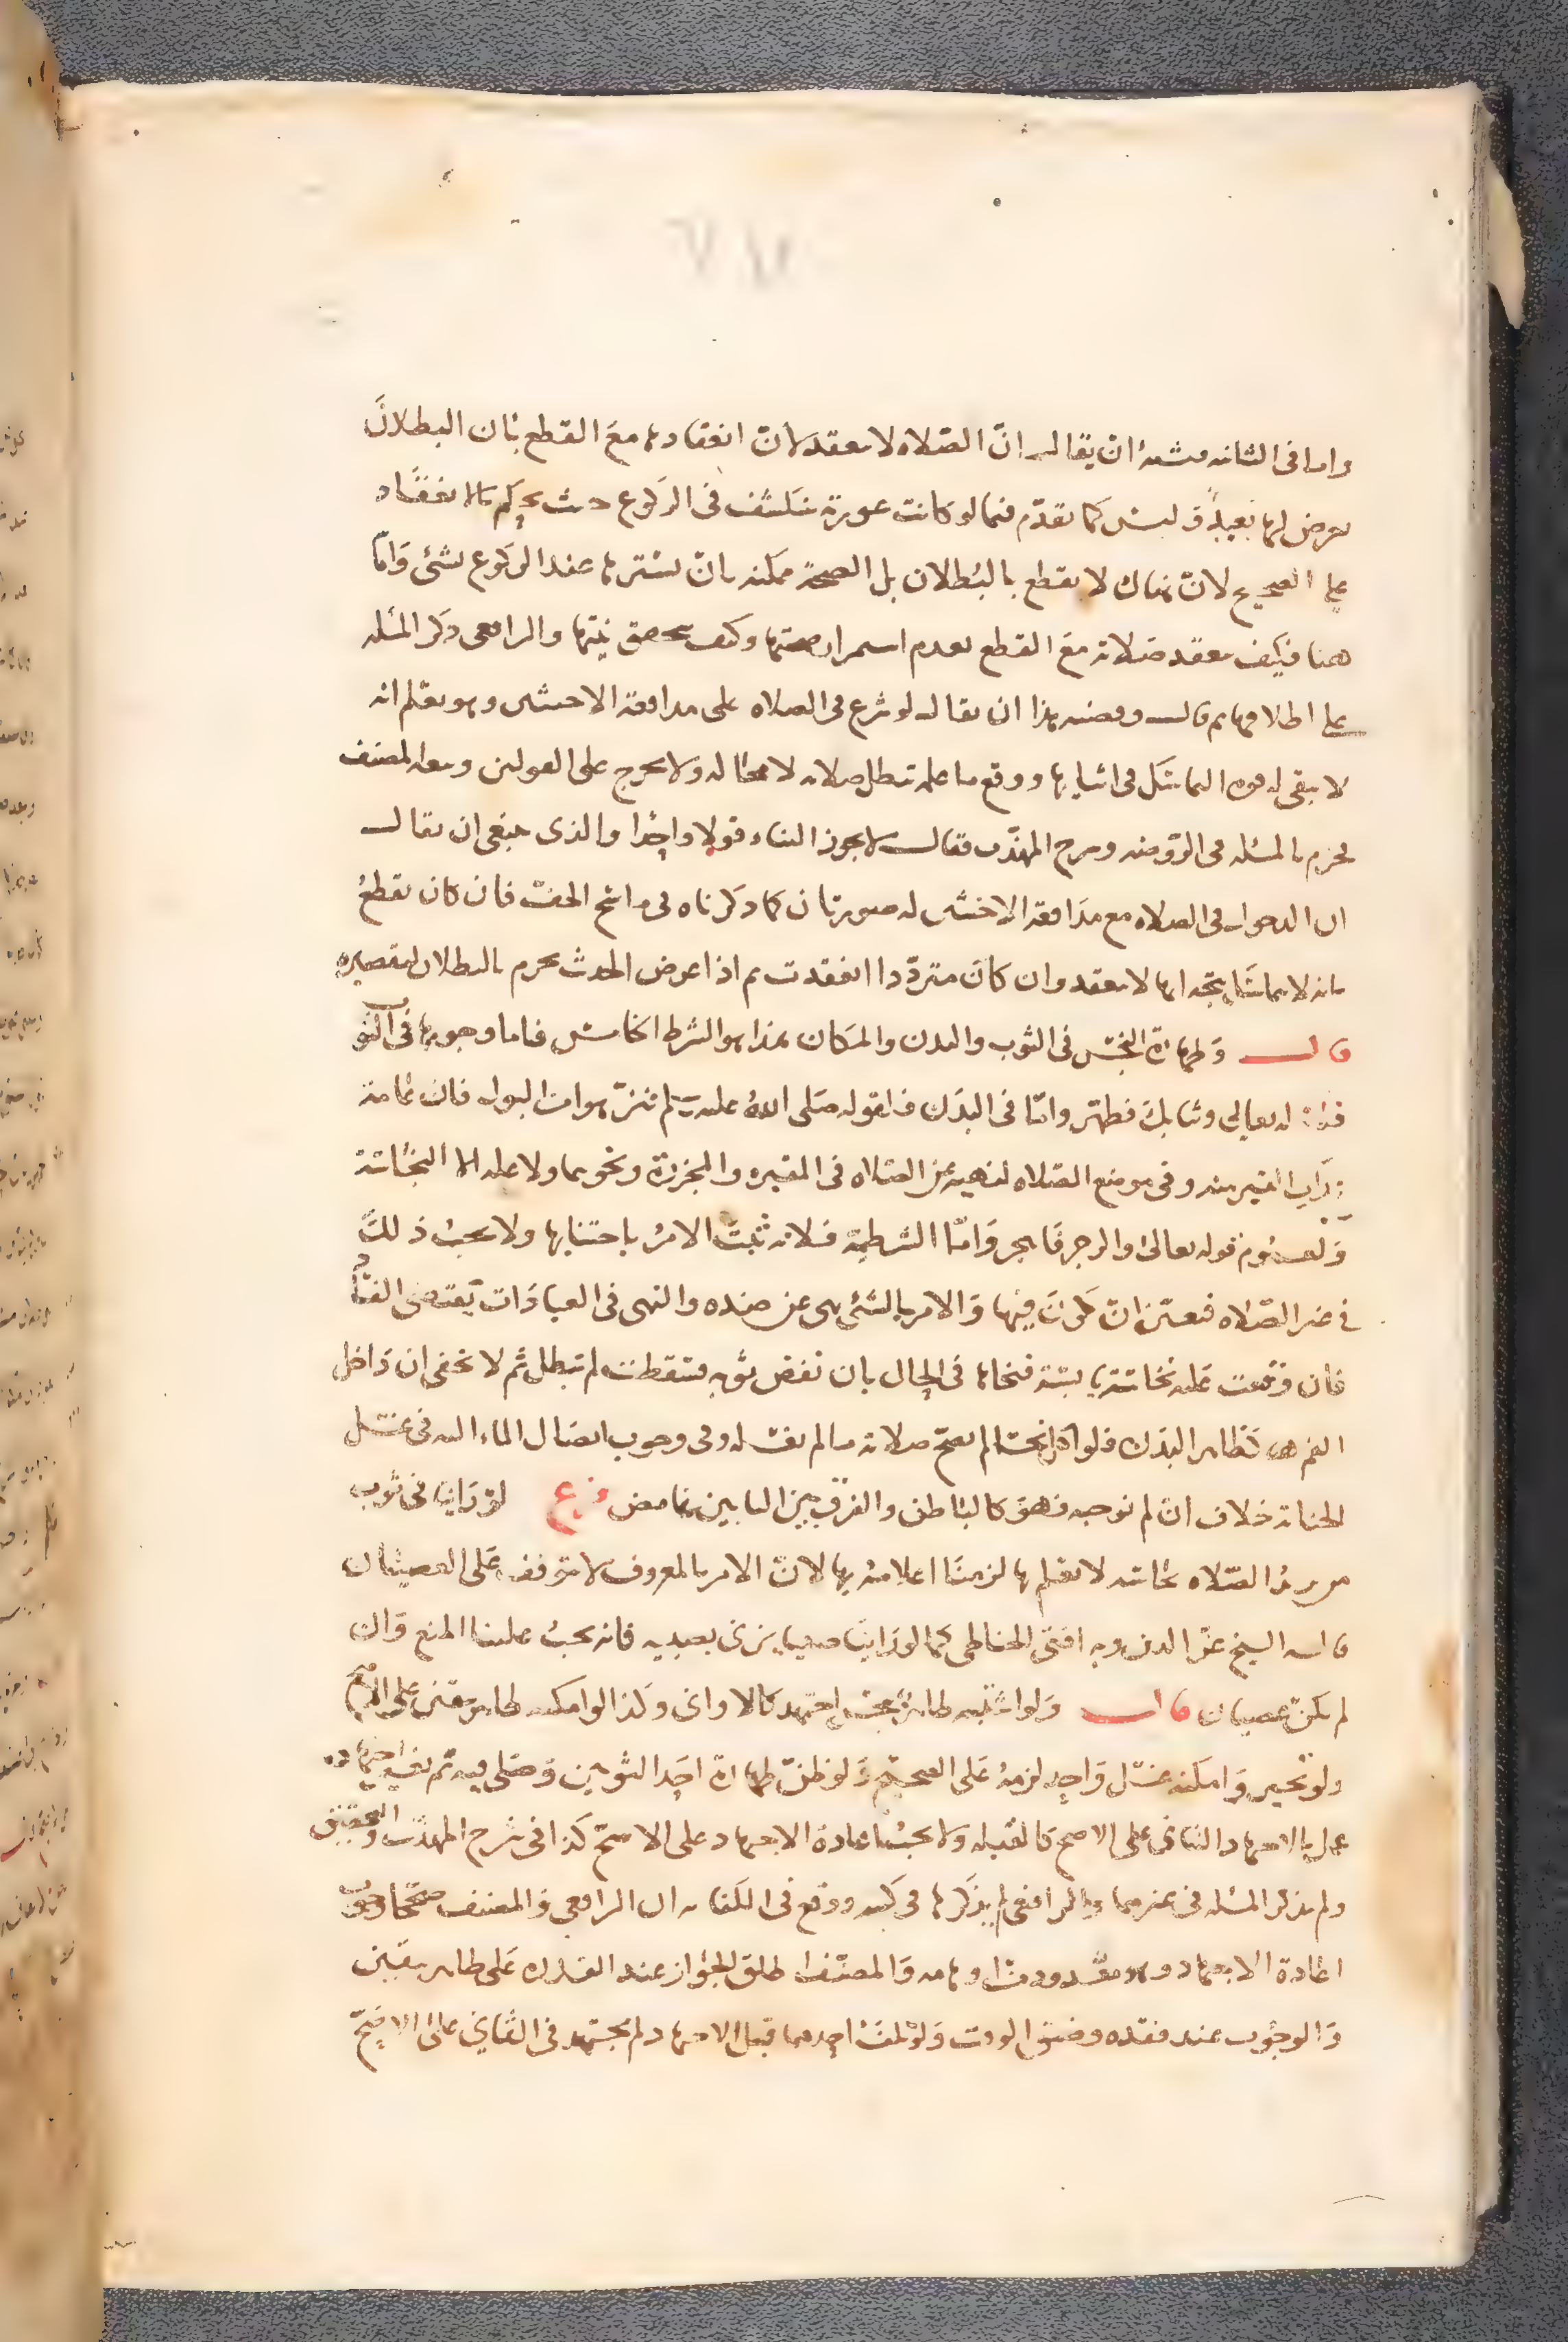 واما فى الثانيه فينبغى ان يقال ان الصلاه لا تنعقد لان انعقادها مع القطع بان البطلان
يعرض لها بعيد وليس كما تقدم فيما لو كانت عورته تنكشف فى الركوع حيث يحكم بالانعقاد
على الصحيح لان هناك لا يقطع بالبطلان بل الصحة ممكنه بان يسترها عند الركوع بشئ واما
هنا فكيف تنعقد صلاته مع القطع بعدم استمرار صحتها وكيف يتحقق نيتها والرافعى ذكر المسئله
على اطلاقها ثم قال وقضيه هذا ان يقال لو شرع فى الصلاه على مدافعة الاخبثين وهو يعلم انه
لا يبقى له قوه التماسك فى اثنايها ووقع ما علمه تبطل صلاته لا محاله ولا يخرج على القولين وتبعه المصنف
فجزم بالمسئله فى الروضه وشرح المهذب فقال لا يجوز البناء قولا واحدا والذى ينبغى ان يقال
ان الدخول فى الصلاه مع مدافعة الاخبثين له صورتان كما ذكرناه فى ماسح الخف فان كان يقطع
بانه لا يتماسك يتجه انها لا تنعقد وان كان مترددا انعقدت ثم اذا عرض الحدث يجزم بالبطلان لتقصيره
قال وطهارة النجس فى الثوب والبدن والمكان هذا هو الشرط الخامس فاما وجوبها فى الثوب
فلقوله تعالى وثيابك فطهر واما فى البدن فلقوله صلى الله عليه وسلم تنزهوا من البول فان عامة
عذاب القبر منه وفى موضع الصلاه لنهيه عن الصلاه فى المقبره والمجزرة ونحوهما ولا عله الا النجاسة
ولعموم قوله تعالى والرجز فاهجر واما الشرطية فلانه ثبت الامر باجتنابها ولا يجب ذلك
فى غير الصلاه فتعين ان يكون فيها والامر بالشئ نهى عن ضده والنهى فى العبادات يقتضى الفساد
فان وقعت عليه نجاسة يابسة فنحاها فى الحال بان نفض ثوبه فسقطت لم تبطل ثم لا يخفى ان داخل
الفم هنا كظاهر البدن فلو اكل نجسا لم تصح صلاته ما لم يغسله وفى وجوب ايصال الماء اليه فى غسل
الجنابة خلاف ان لم نوجبه فهو كالباطن والفرق بين البابين غامض فرع لو راينا فى ثوب
من يريد الصلاه نجاسه لا يعلم بها لزمنا اعلامه بها لان الامر بالمعروف لا يتوقف على العصيان
قاله الشيخ عز الدين وبه افتى الحناطى كما لو راينا صبيا يزنى بصبيه فانه يجب علينا المنع وان
لم يكن عصيان قال ولو اشتبه طاهر بنجس اجتهد كالاوانى وكذا لو امكنه طاهر بيقين على الاصح
ولو تحير وامكنه غسل واحد لزمه على الصحيح ولو ظن طهارة احد الثوبين وصلى فيه ثم تغير اجتهاده
عمل بالاجتهاد الثانى على الاصح كالقبله ولا يجب اعادة الاجتهاد على الاصح كذا فى شرح المهذب والتحقيق
ولم يذكر المسئله فى غيرهما والرافعى لم يذكرها فى كتبه ووقع فى الكفايه ان الرافعى والمصنف صححا وجوب
اعادة الاجتهاد وهو والمصنف اطلق الجواز عند القدره على طاهر بيقين
والوجوب عند فقده وضيق الوقت ولو تلف احدهما قبل الاجتهاد لم يجتهد فى الثانى على الاصح